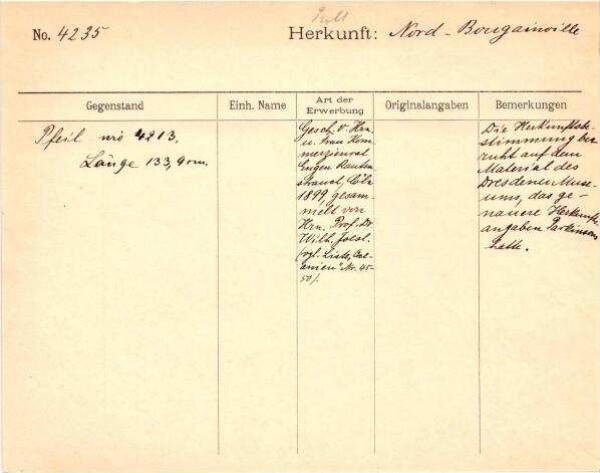 No. 4235
Herkunft: Nord-Bougainville
Gegenstand
Einh. Name
Art der
Erwerbung
Originalangaben
Bemerkungen
Pfeil wie 4213.
Länge 133,9 cm.
Gesch. v. Hrn.
u. Frau Kom-
merzienrat
Eugen Rauten-
strauch, Cöln
1899, gesam-
melt von
Hrn. Prof. Dr.
Wilh. Joest.
(vgl. Liste, Oze-
anien" Nr. 45-
50).
Die Herkunftsbe-
stimmung be-
ruht auf dem
Material des
Dresdener Muse-
ums, das ge-
nauere Herkunfts-
angaben Parkinsons
hatte.